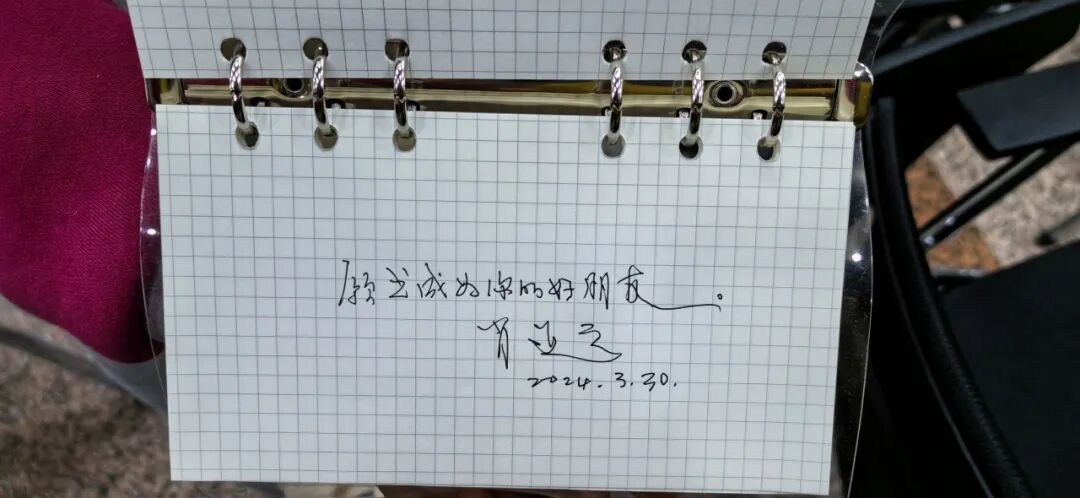 愿书成为你的好朋友。
肖
2024.3.30.